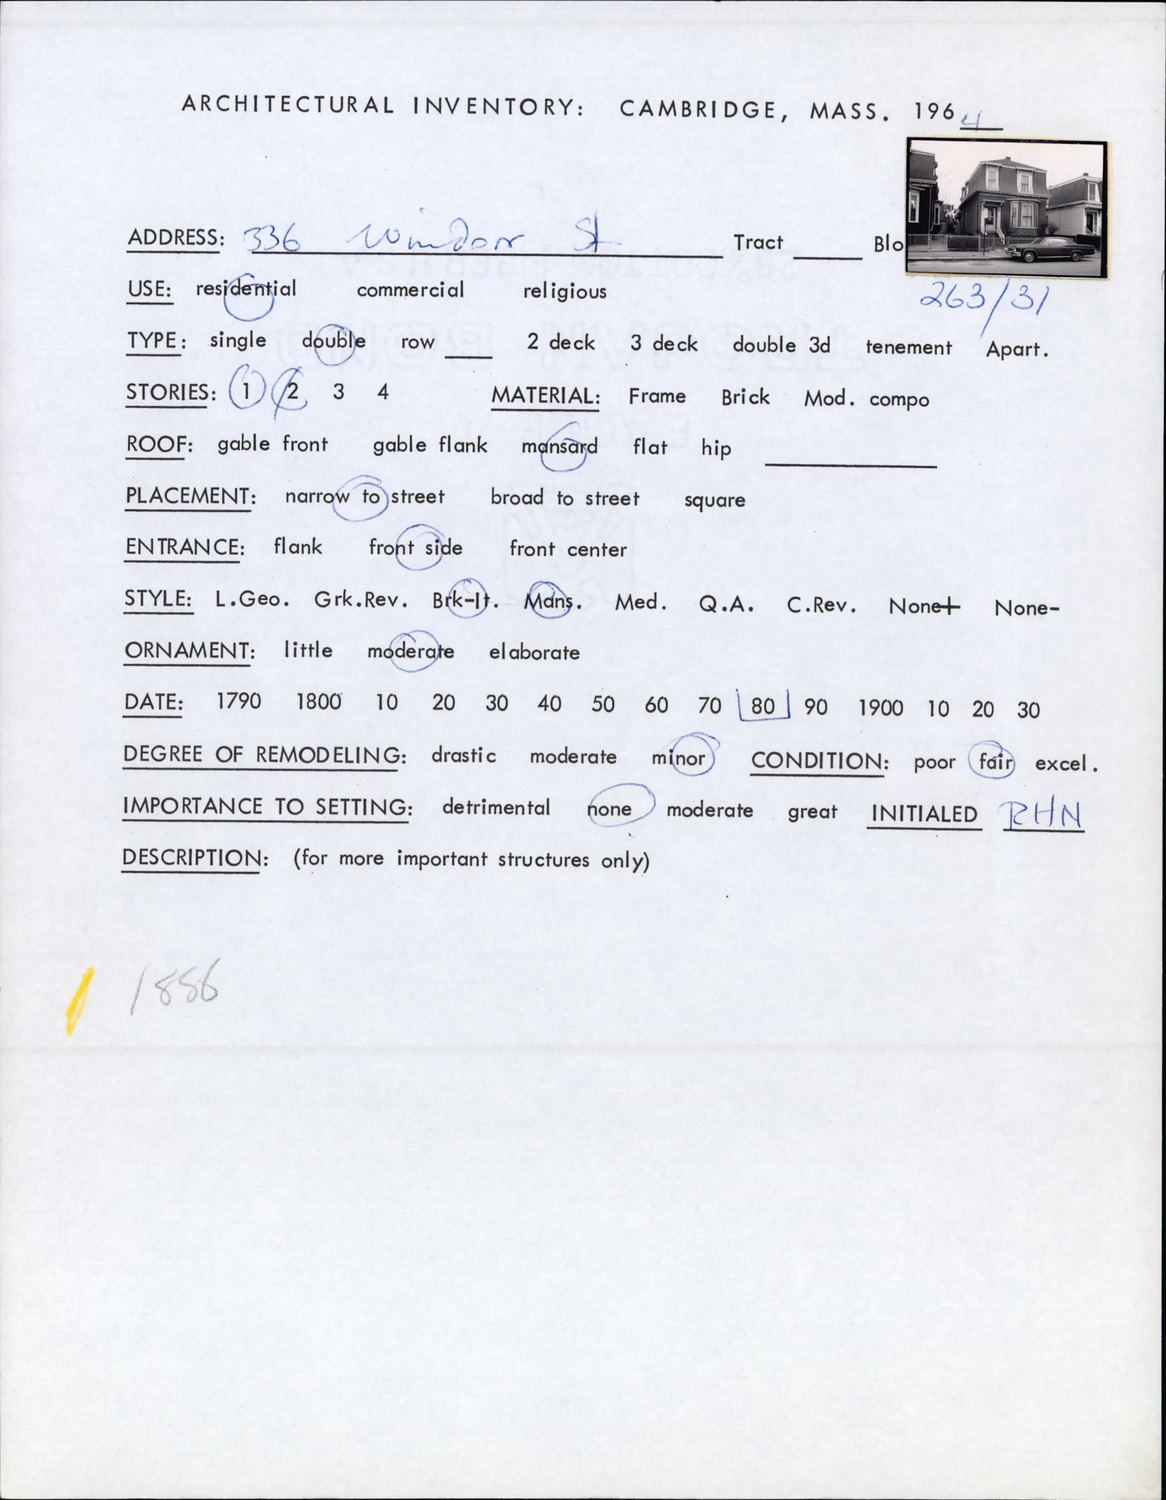 ARCHITECTURAL INVENTORY: CAMBRIDGE, MASS. 1964
ADDRESS: 336 Windsor St Tract ____ Blo
263/31
USE: residential commercial religious
TYPE: single double row ____ 2 deck 3 deck double 3d tenement Apart.
STORIES: 1 2 3 4 MATERIAL: Frame Brick Mod. compo
ROOF: gable front gable flank mansard flat hip ____
PLACEMENT: narrow to street broad to street square
ENTRANCE: flank front side front center
STYLE: L.Geo. Grk.Rev. Brk-It. Mans. Med. Q.A. C.Rev. None+ None-
ORNAMENT: little moderate elaborate
DATE: 1790 1800 10 20 30 40 50 60 70 80 90 1900 10 20 30
DEGREE OF REMODELING: drastic moderate minor CONDITION: poor fair excel.
IMPORTANCE TO SETTING: detrimental none moderate great INITIALED RHN
DESCRIPTION: (for more important structures only)
1886